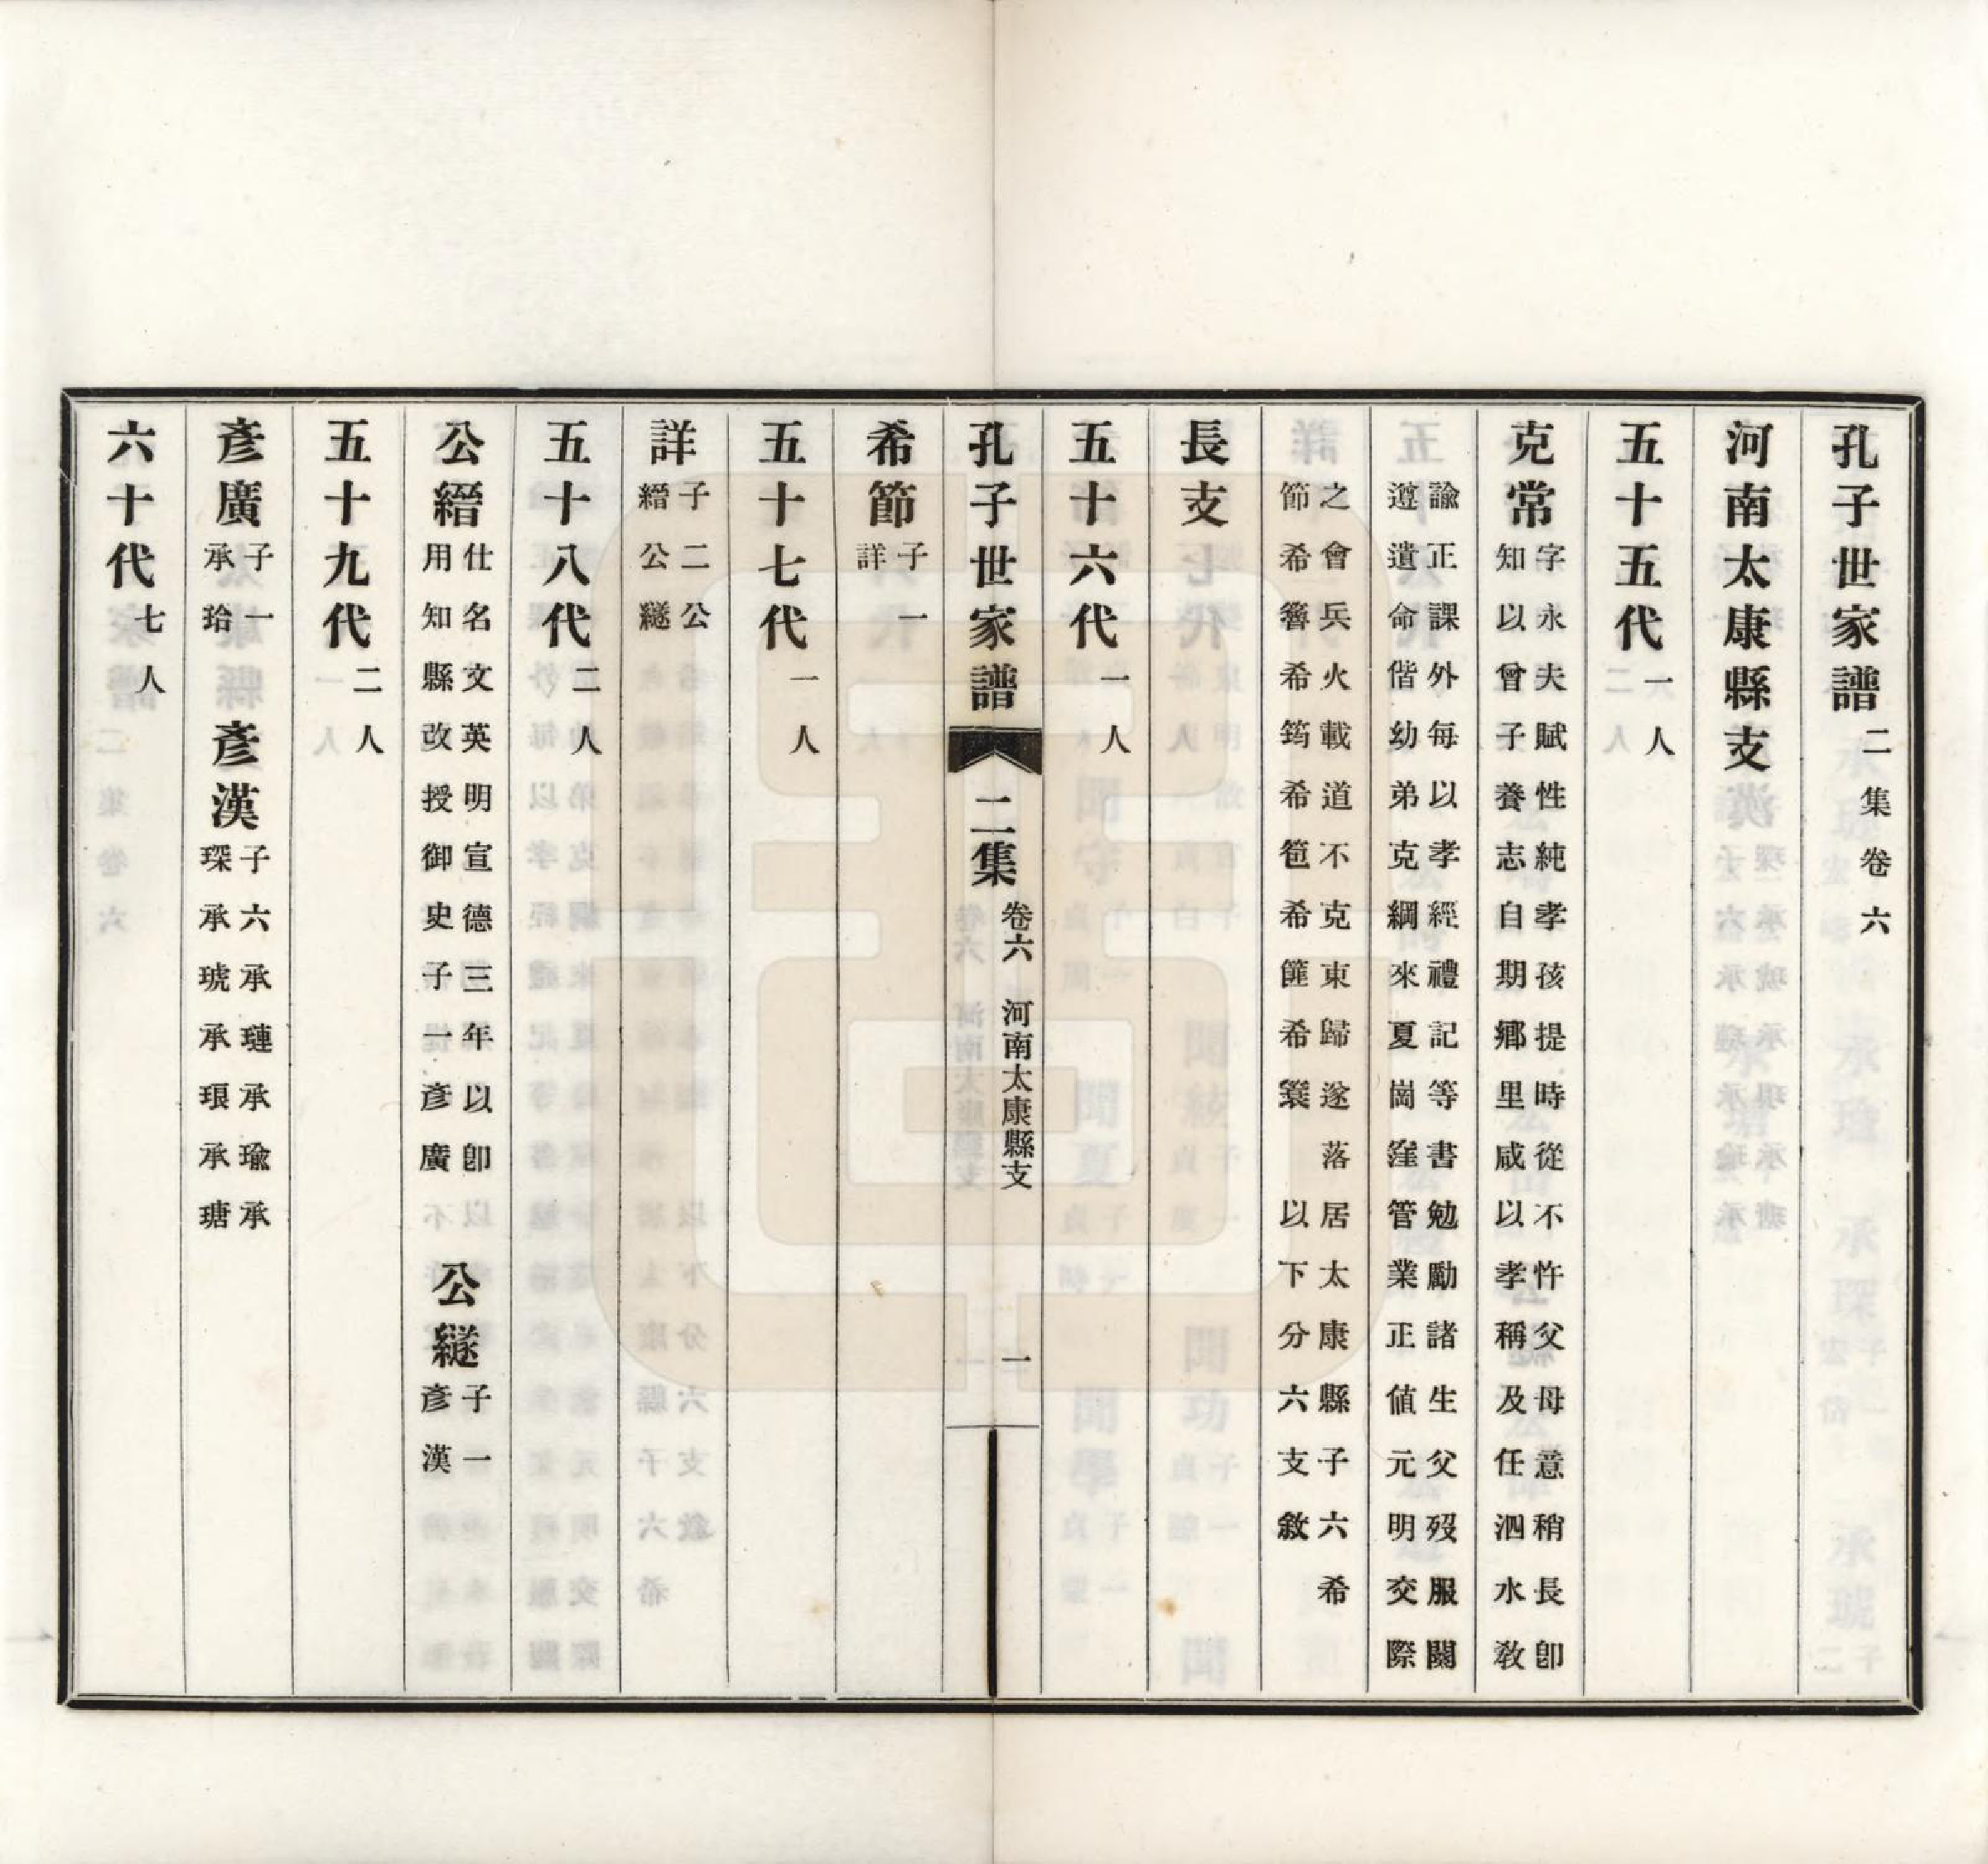 孔子世家譜二集卷六
河南太康縣支
五十五代一人
克常字永夫賦性純孝孩提時從不忤父母意稍長卽
知以曾子養志自期鄉里咸以孝稱及任泗水敎
諭正課外每以孝經禮記等書勉勵諸生父歿服闋
遵遺命偕幼弟克綱來夏崗窪管業正値元明交際
之會兵火載道不克東歸遂落居太康縣子六希
節希簬希筠希笣希篚希簑以下分六支敘
長支
五十六代一人
孔子世家譜 二集 卷六 河南太康縣支 一
希節子一
詳
五十七代一人
詳子二公
縉公繼
五十八代二人
公縉仕名文英明宣德三年以卽
用知縣改授御史子一彥廣
公繼子一
彥漢
五十九代二人
彥廣子一
承珨
彥漢子六承璉承瑜承
琛承琥承琅承瑭
六十代七人